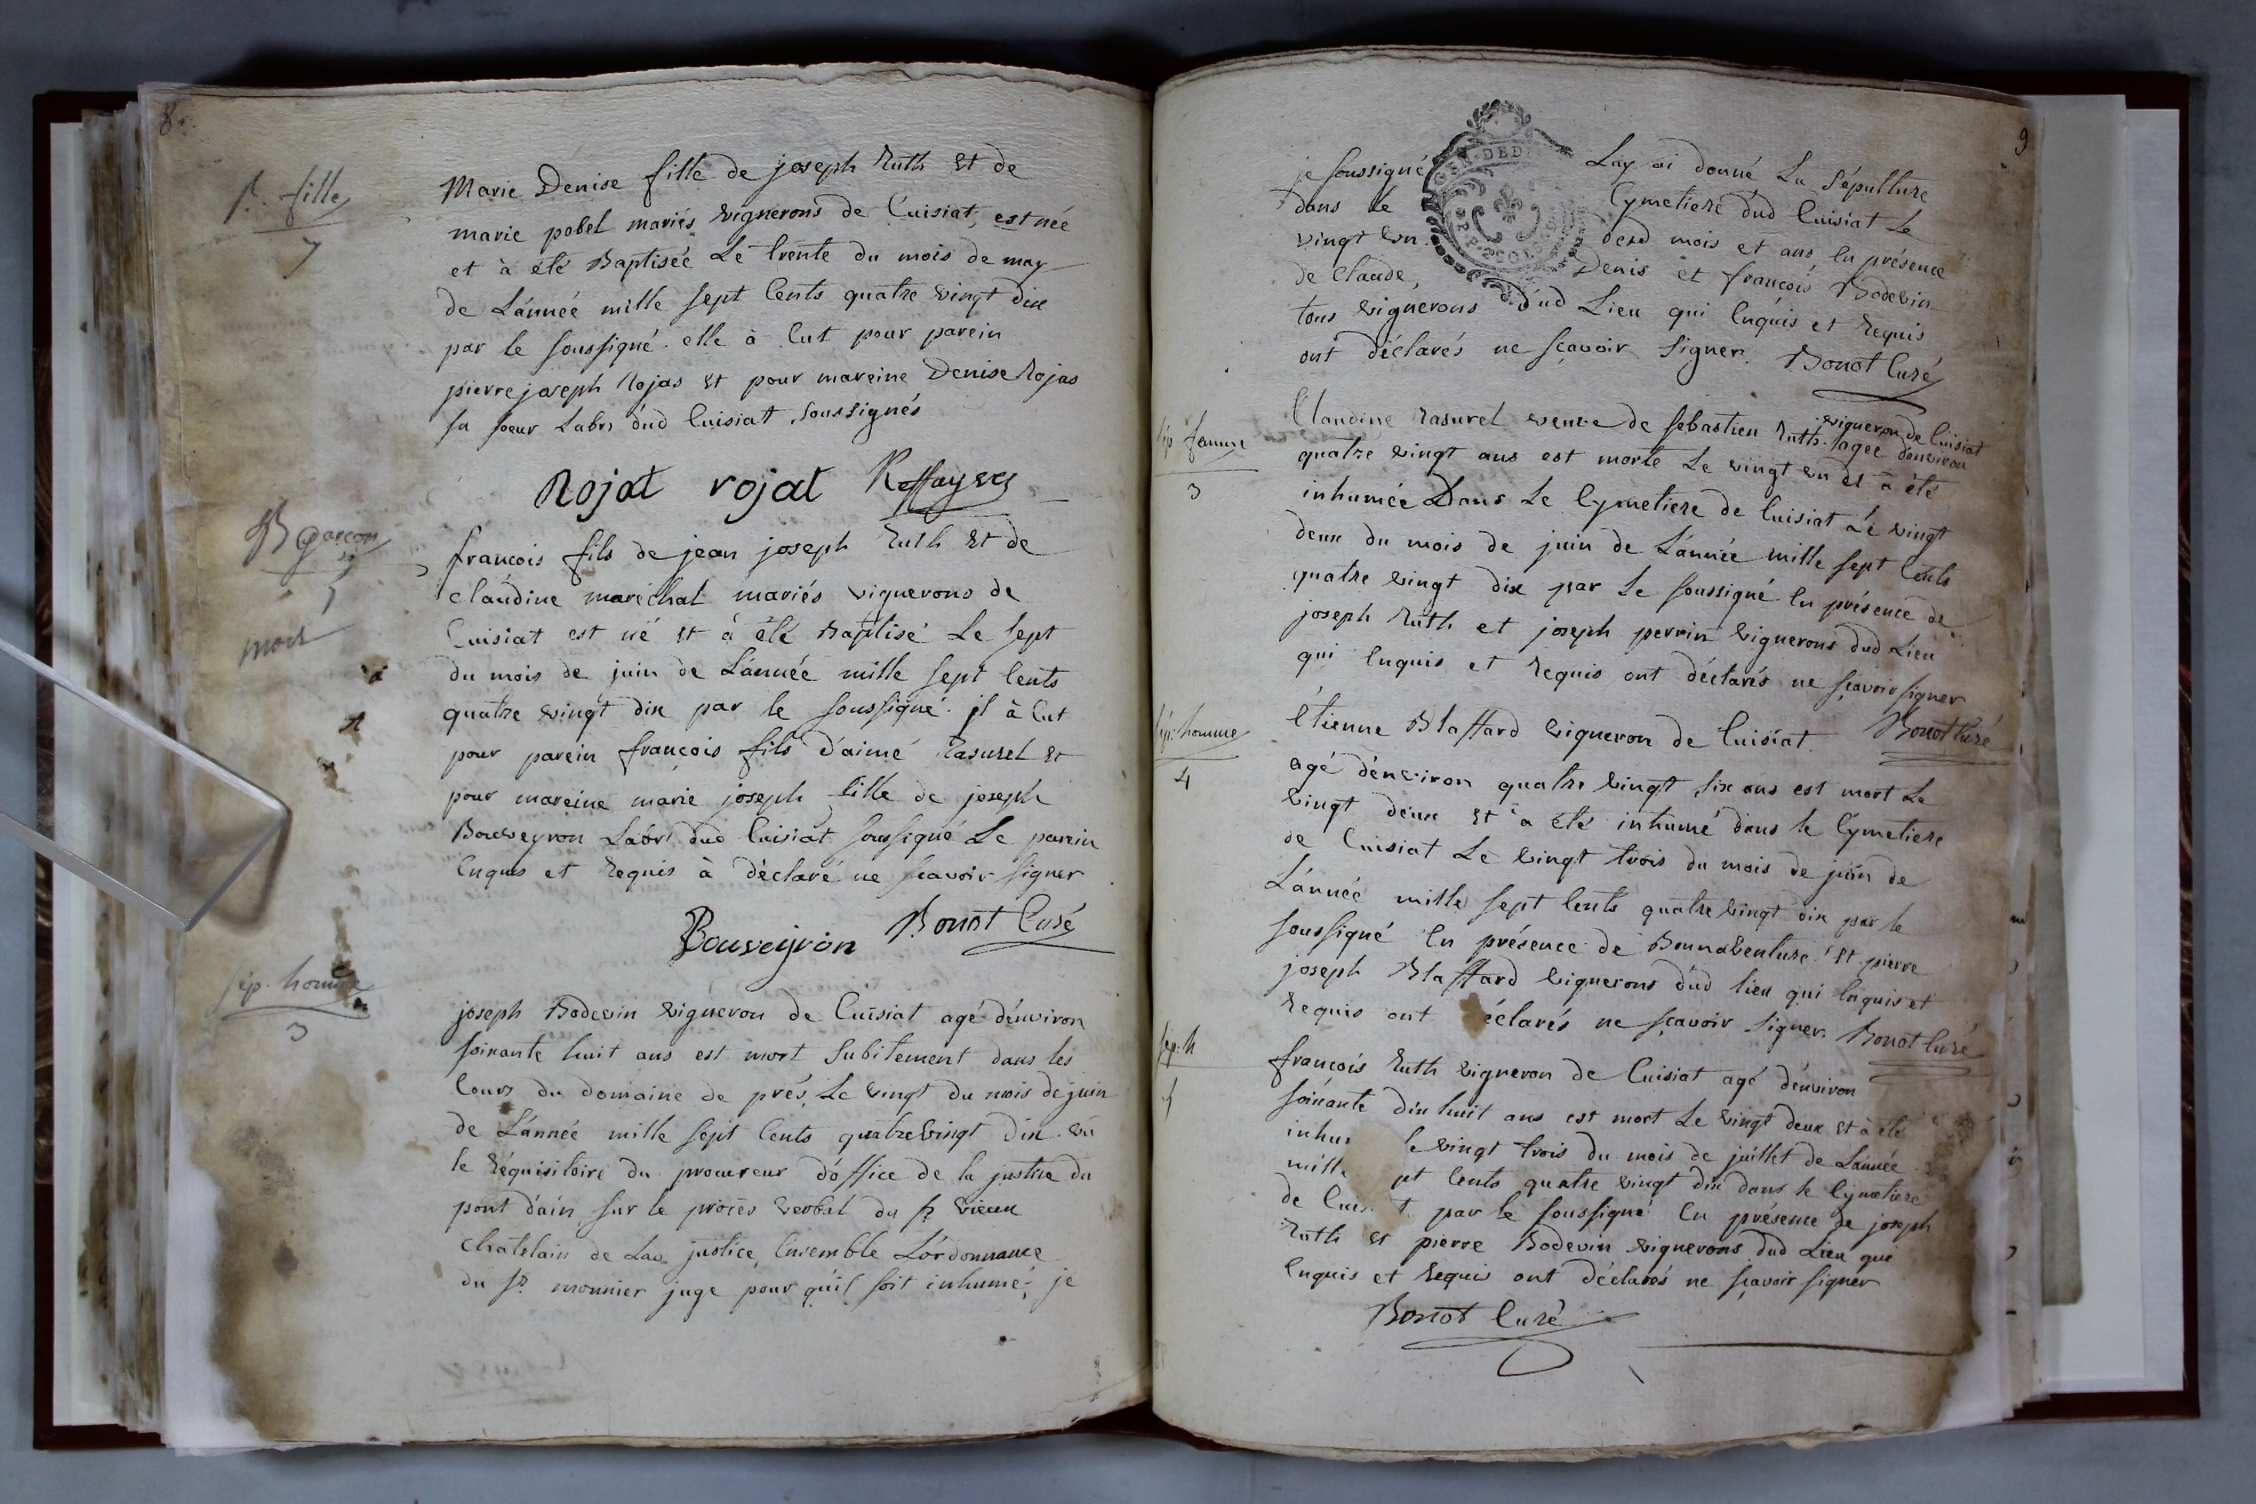 8.
fille
7
Marie Denise fille de joseph Ruth et de
marie pobel mariés vignerons de Cuisiat, est née
et à été Baptisée Le trente du mois de may
de L'année mille sept Cents quatre vingt dix
par le soussigné. elle à Eut pour parein
pierre joseph Rojas et pour mareine Denise Rojas
sa soeur Labrs dud Cuisiat soussignés
Rojat rojat
B garçon
5
mort
francois fils de jean joseph Ruth et de
claudine maréchal mariés vignerons de
Cuisiat est né et à été Baptisé Le sept
du mois de juin de L'année mille sept Cents
quatre vingt dix par le soussigné. jl à Eut
pour parein françois fils d'aimé Rasurel et
pour mareine marie joseph fille de joseph
Bouveyron Labrs dud Cuisiat soussigné Le parein
Enquis et Requis à déclaré ne sçavoir signer
Bouveyron Bonot Curé
sép. homme
3
joseph Bodevin vigneron de Cuisiat agé d'environ
soixante huit ans est mort subitement dans les
Cours du domaine de prés, Le vingt du mois de juin
de L'année mille sept Cents quatre vingt dix. vu
le Réquisitoire du procureur d'office de la justice du
pont d'ain, sur le procès verbal du sr vieux
chatelain de Lad. justice, Ensemble L'ordonnance
du sr monnier juge pour qu'il soit inhumé; je
9
GEN. DED
je soussigné Lay ai donné La sépulture
dans Le Cymetiere dud Cuisiat Le
vingt un desd mois et ans En présence
de Claude, Denis et françois Bodevin
tous vignerons dud Lieu qui Enquis et Requis
ont déclarés ne sçavoir signer. Bonot Curé
sép femme
3
Claudine Rasurel veuve de sebastien Ruth vigneron de Cuisiat agée d'environ
quatre vingt ans est morte Le vingt un et à été
inhumée Dans Le Cymetiere de Cuisiat Le vingt
deux du mois de juin de L'année mille sept Cents
quatre vingt dix par Le soussigné En présence de
joseph Ruth et joseph perrin vignerons dud Lieu
qui Enquis et Requis ont déclarés ne sçavoir signer
Bonot Curé
sép. homme
4
Etienne Blaffard vigneron de Cuisiat
agé d'environ quatre vingt six ans est mort Le
vingt deux et a été inhumé dans le Cymetiere
de Cuisiat Le vingt trois du mois de juin de
L'année mille sept Cents quatre vingt dix par le
soussigné En présence de Bonnaventure et pierre
joseph Blaffard vignerons dud lieu qui Enquis et
Requis ont éclarés ne sçavoir signer. Bonot Curé
sep. h
5
françois Ruth vigneron de Cuisiat agé d'environ
soixante dix huit ans est mort Le vingt deux et à été
inhu le vingt trois du mois de juillet de L'année
mill pt Cents quatre vingt dix dans le Cymetiere
de Cuis t par le soussigné En présence de joseph
Ruth et pierre Bodevin vignerons dud Lieu qui
Enquis et Requis ont déclarés ne sçavoir signer
Bonot Curé